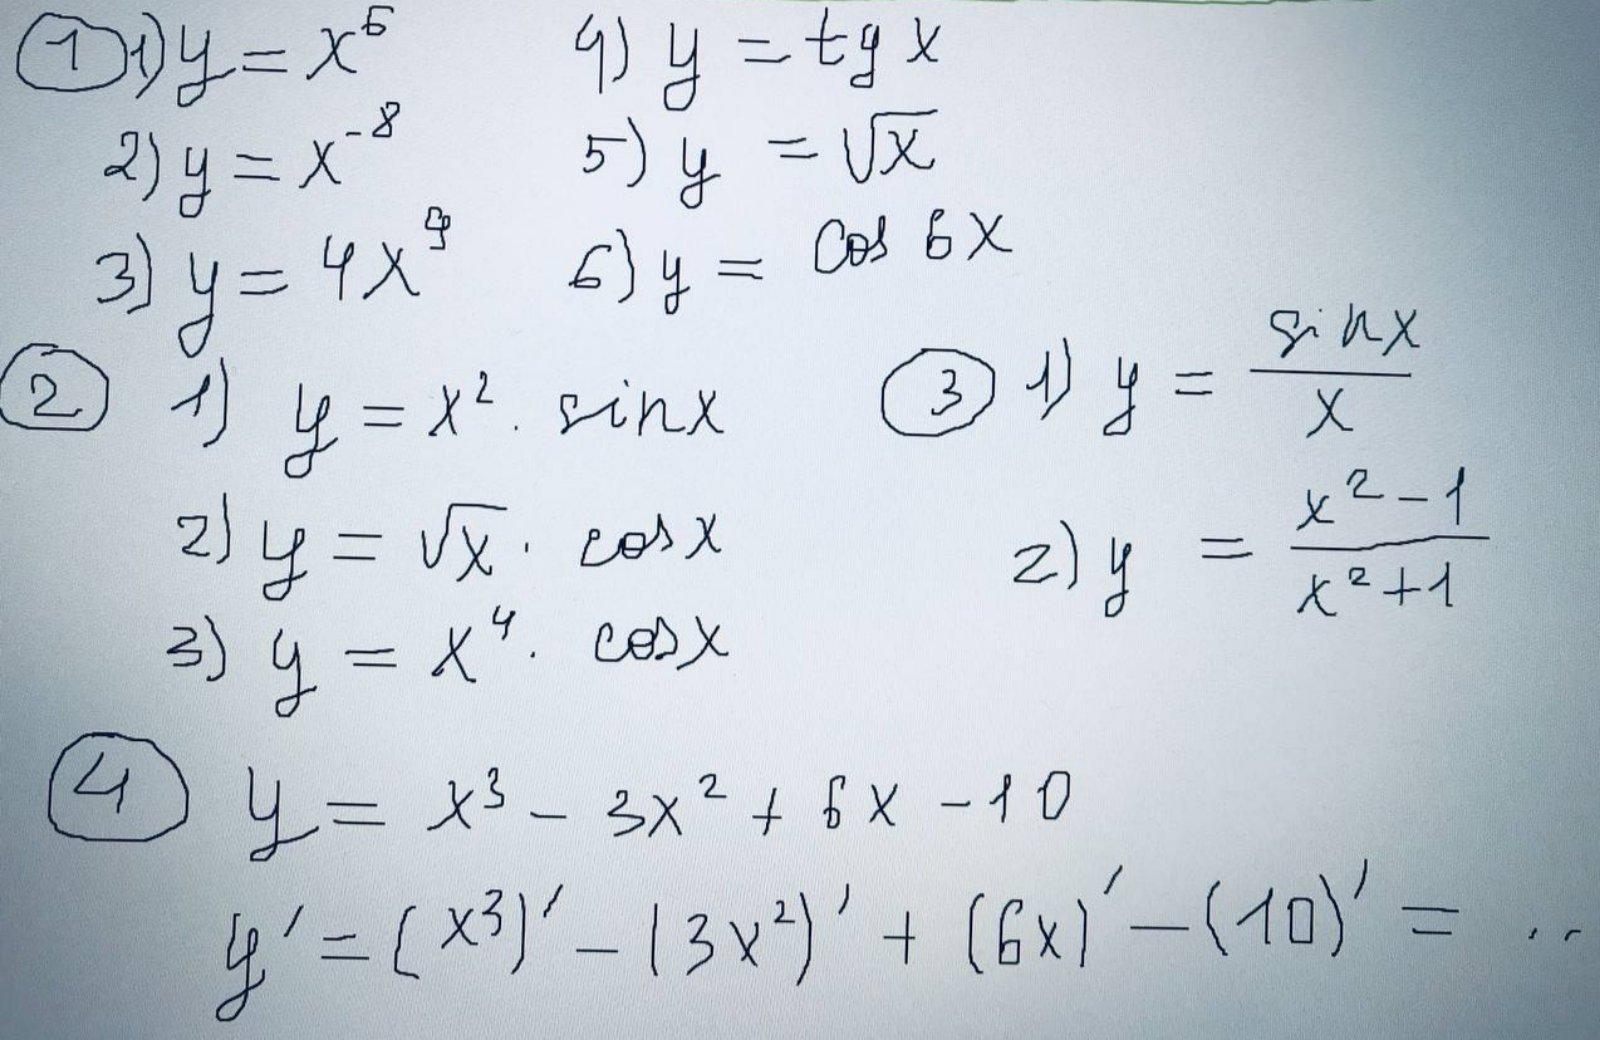 ① 1) y = x⁶ 4) y = tg x
2) y = x⁻⁸ 5) y = √x
3) y = 4x⁹ 6) y = cos 6x
② 1) y = x² · sinx
2) y = √x · cosx
3) y = x⁴ · cosx
③ 1) y = sinx / x
2) y = x²-1 / x²+1
④ y = x³ - 3x² + 6x - 10
y' = (x³)' - (3x²)' + (6x)' - (10)' = ..